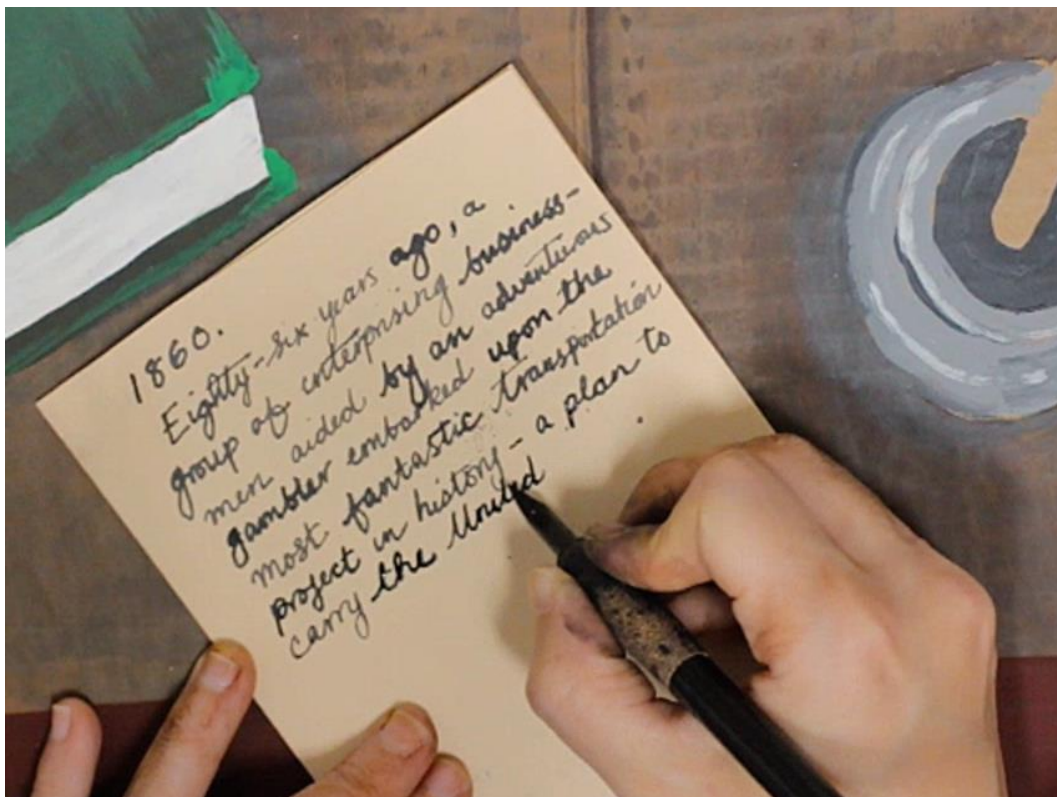 1860.
Eighty-six years ago, a
group of enterprising business-
men aided by an adventurous
gambler embarked upon the
most fantastic transportation
project in history - a plan to
carry the United